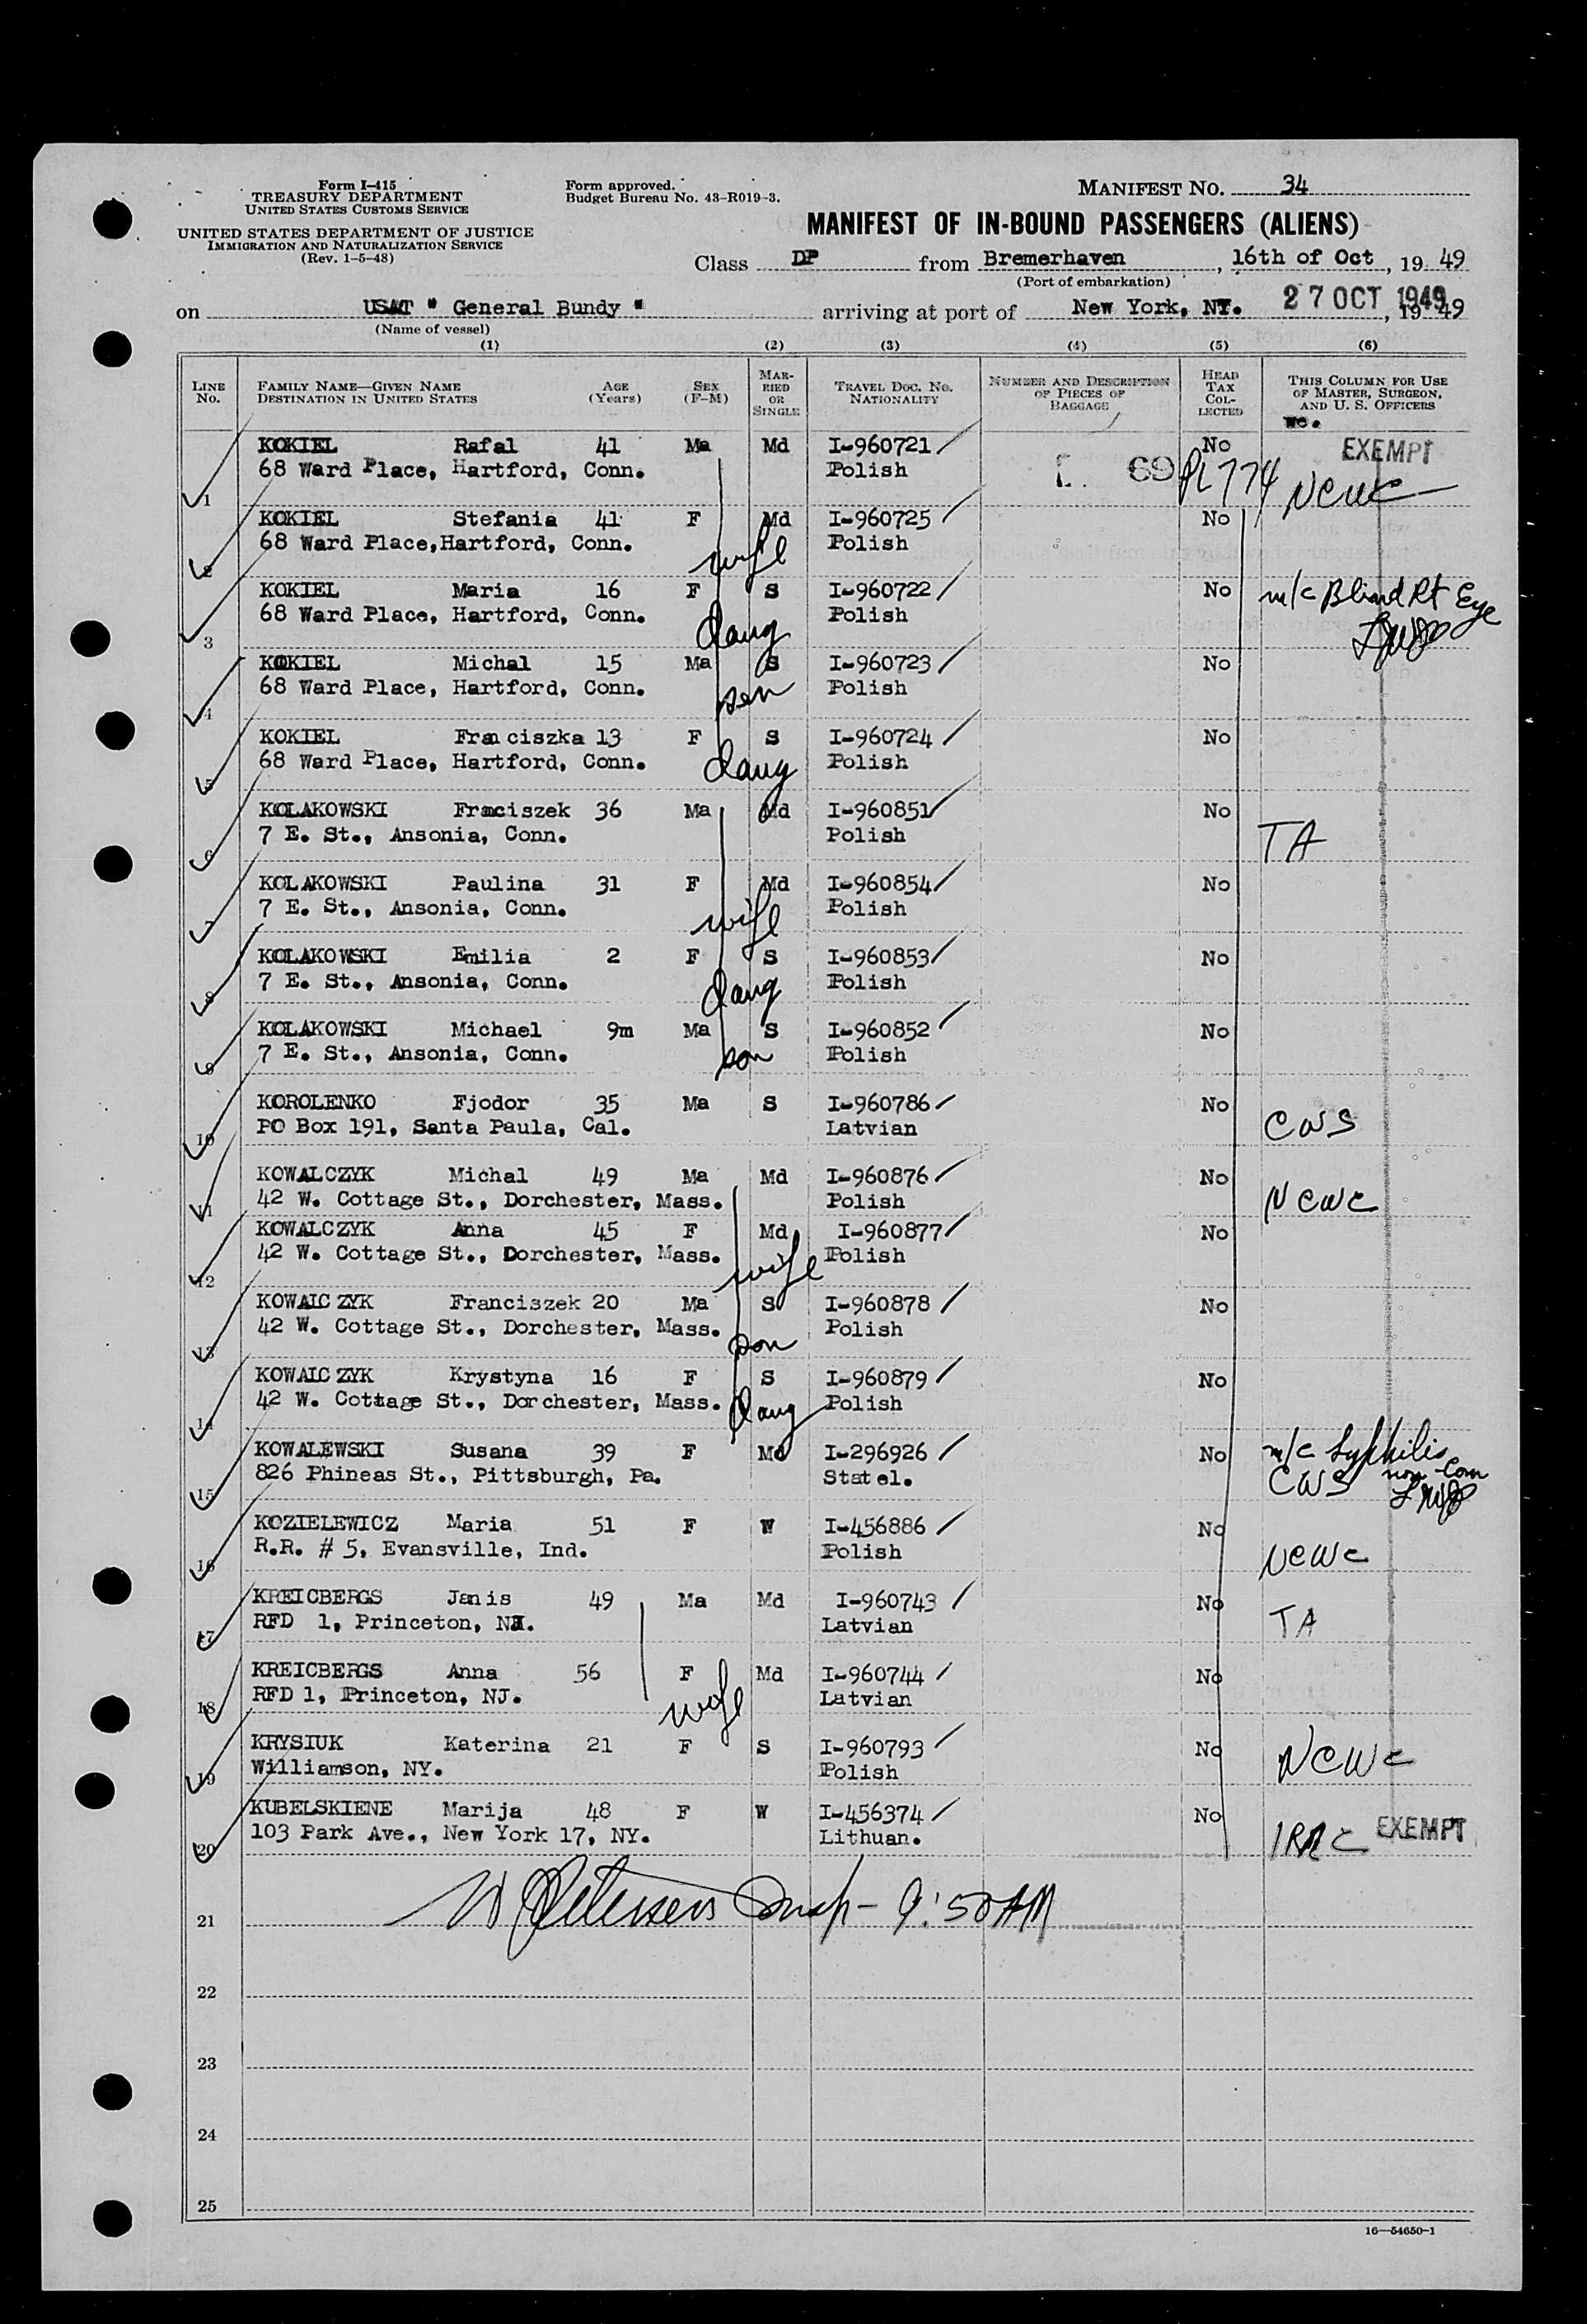 Form I-415
TREASURY DEPARTMENT
UNITED STATES CUSTOMS SERVICE
UNITED STATES DEPARTMENT OF JUSTICE
IMMIGRATION AND NATURALIZATION SERVICE
(Rev. 1-5-48)
Form approved.
Budget Bureau No. 43-R019-3.
MANIFEST NO. 34
MANIFEST OF IN-BOUND PASSENGERS (ALIENS)
Class DP from Bremerhaven, 16th of Oct, 19 49
(Port of embarkation)
on USAT " General Bundy " arriving at port of New York, NY. 27 OCT 1949, 19 49
(Name of vessel)
(1) (2) (3) (4) (5) (6)
LINE NO. FAMILY NAME—GIVEN NAME DESTINATION IN UNITED STATES AGE (Years) SEX (F-M) MARRIED OR SINGLE TRAVEL DOC. NO. NATIONALITY NUMBER AND DESCRIPTION OF PIECES OF BAGGAGE HEAD TAX COLLECTED THIS COLUMN FOR USE OF MASTER, SURGEON, AND U. S. OFFICERS
KOKIEL Rafal 41 Ma Md I-960721 No EXEMPT
1 68 Ward Place, Hartford, Conn. Polish 69 PL 774 NCWC
KOKIEL Stefania 41 F Md I-960725 No
2 68 Ward Place, Hartford, Conn. wife Polish
KOKIEL Maria 16 F S I-960722 No m/c Blind Rt Eye
3 68 Ward Place, Hartford, Conn. daug Polish
KOKIEL Michal 15 Ma S I-960723 No
4 68 Ward Place, Hartford, Conn. son Polish
KOKIEL Franciszka 13 F S I-960724 No
5 68 Ward Place, Hartford, Conn. daug Polish
KOLAKOWSKI Franciszek 36 Ma Md I-960851 No
6 7 E. St., Ansonia, Conn. Polish TA
KOLAKOWSKI Paulina 31 F Md I-960854 No
7 7 E. St., Ansonia, Conn. wife Polish
KOLAKOWSKI Emilia 2 F S I-960853 No
8 7 E. St., Ansonia, Conn. daug Polish
KOLAKOWSKI Michael 9m Ma S I-960852 No
9 7 E. St., Ansonia, Conn. son Polish
KOROLENKO Fjodor 35 Ma S I-960786 No
10 PO Box 191, Santa Paula, Cal. Latvian CWS
KOWALCZYK Michal 49 Ma Md I-960876 No
11 42 W. Cottage St., Dorchester, Mass. Polish NCWC
KOWALCZYK Anna 45 F Md I-960877 No
12 42 W. Cottage St., Dorchester, Mass. wife Polish
KOWALCZYK Franciszek 20 Ma S I-960878 No
13 42 W. Cottage St., Dorchester, Mass. son Polish
KOWALCZYK Krystyna 16 F S I-960879 No
14 42 W. Cottage St., Dorchester, Mass. daug Polish
KOWALEWSKI Susana 39 F Md I-296926 No m/c Syphilis non-Com
15 826 Phineas St., Pittsburgh, Pa. Statel. CWS
KOZIELEWICZ Maria 51 F W I-456886 No
16 R.R. # 5, Evansville, Ind. Polish NCWC
KREICBERGS Janis 49 Ma Md I-960743 No
17 RFD 1, Princeton, NJ. Latvian TA
KREICBERGS Anna 56 F Md I-960744 No
18 RFD 1, Princeton, NJ. wife Latvian
KRYSIUK Katerina 21 F S I-960793 No
19 Williamson, NY. Polish NCWC
KUBELSKIENE Marija 48 F W I-456374 No
20 103 Park Ave., New York 17, NY. Lithuan. EXEMPT
21 W Petersen Insp - 9:50 AM
22
23
24
25
16—54650-1